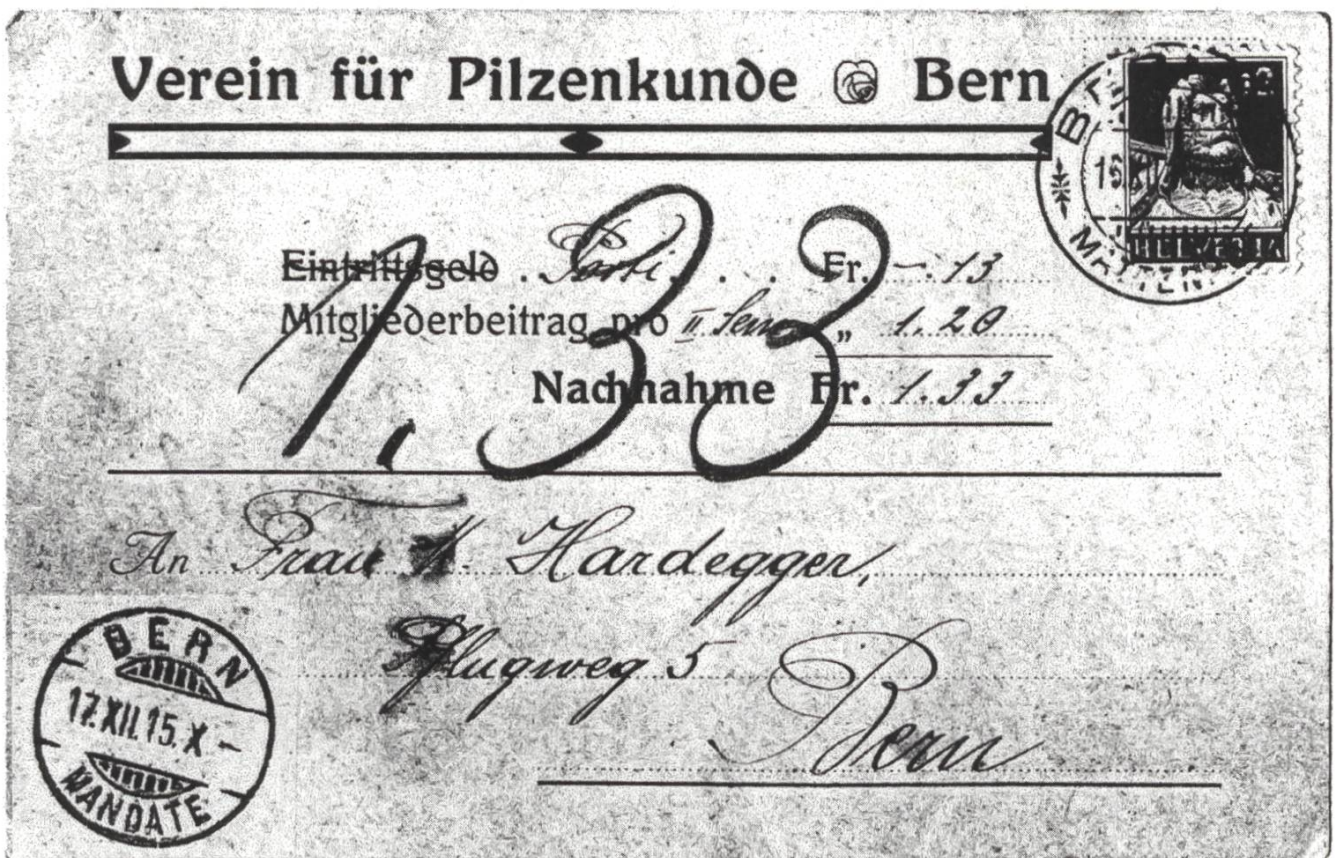 Verein für Pilzenkunde Bern
Eintrittsgeld . Porti . . . Fr. -.13
Mitgliederbeitrag pro II Sem. „ 1.20
Nachnahme Fr. 1.33
1.33
An Frau Hardegger,
Pflugweg 5
Bern
BERN
17.XII.15.X-
MANDATE
HELVETIA